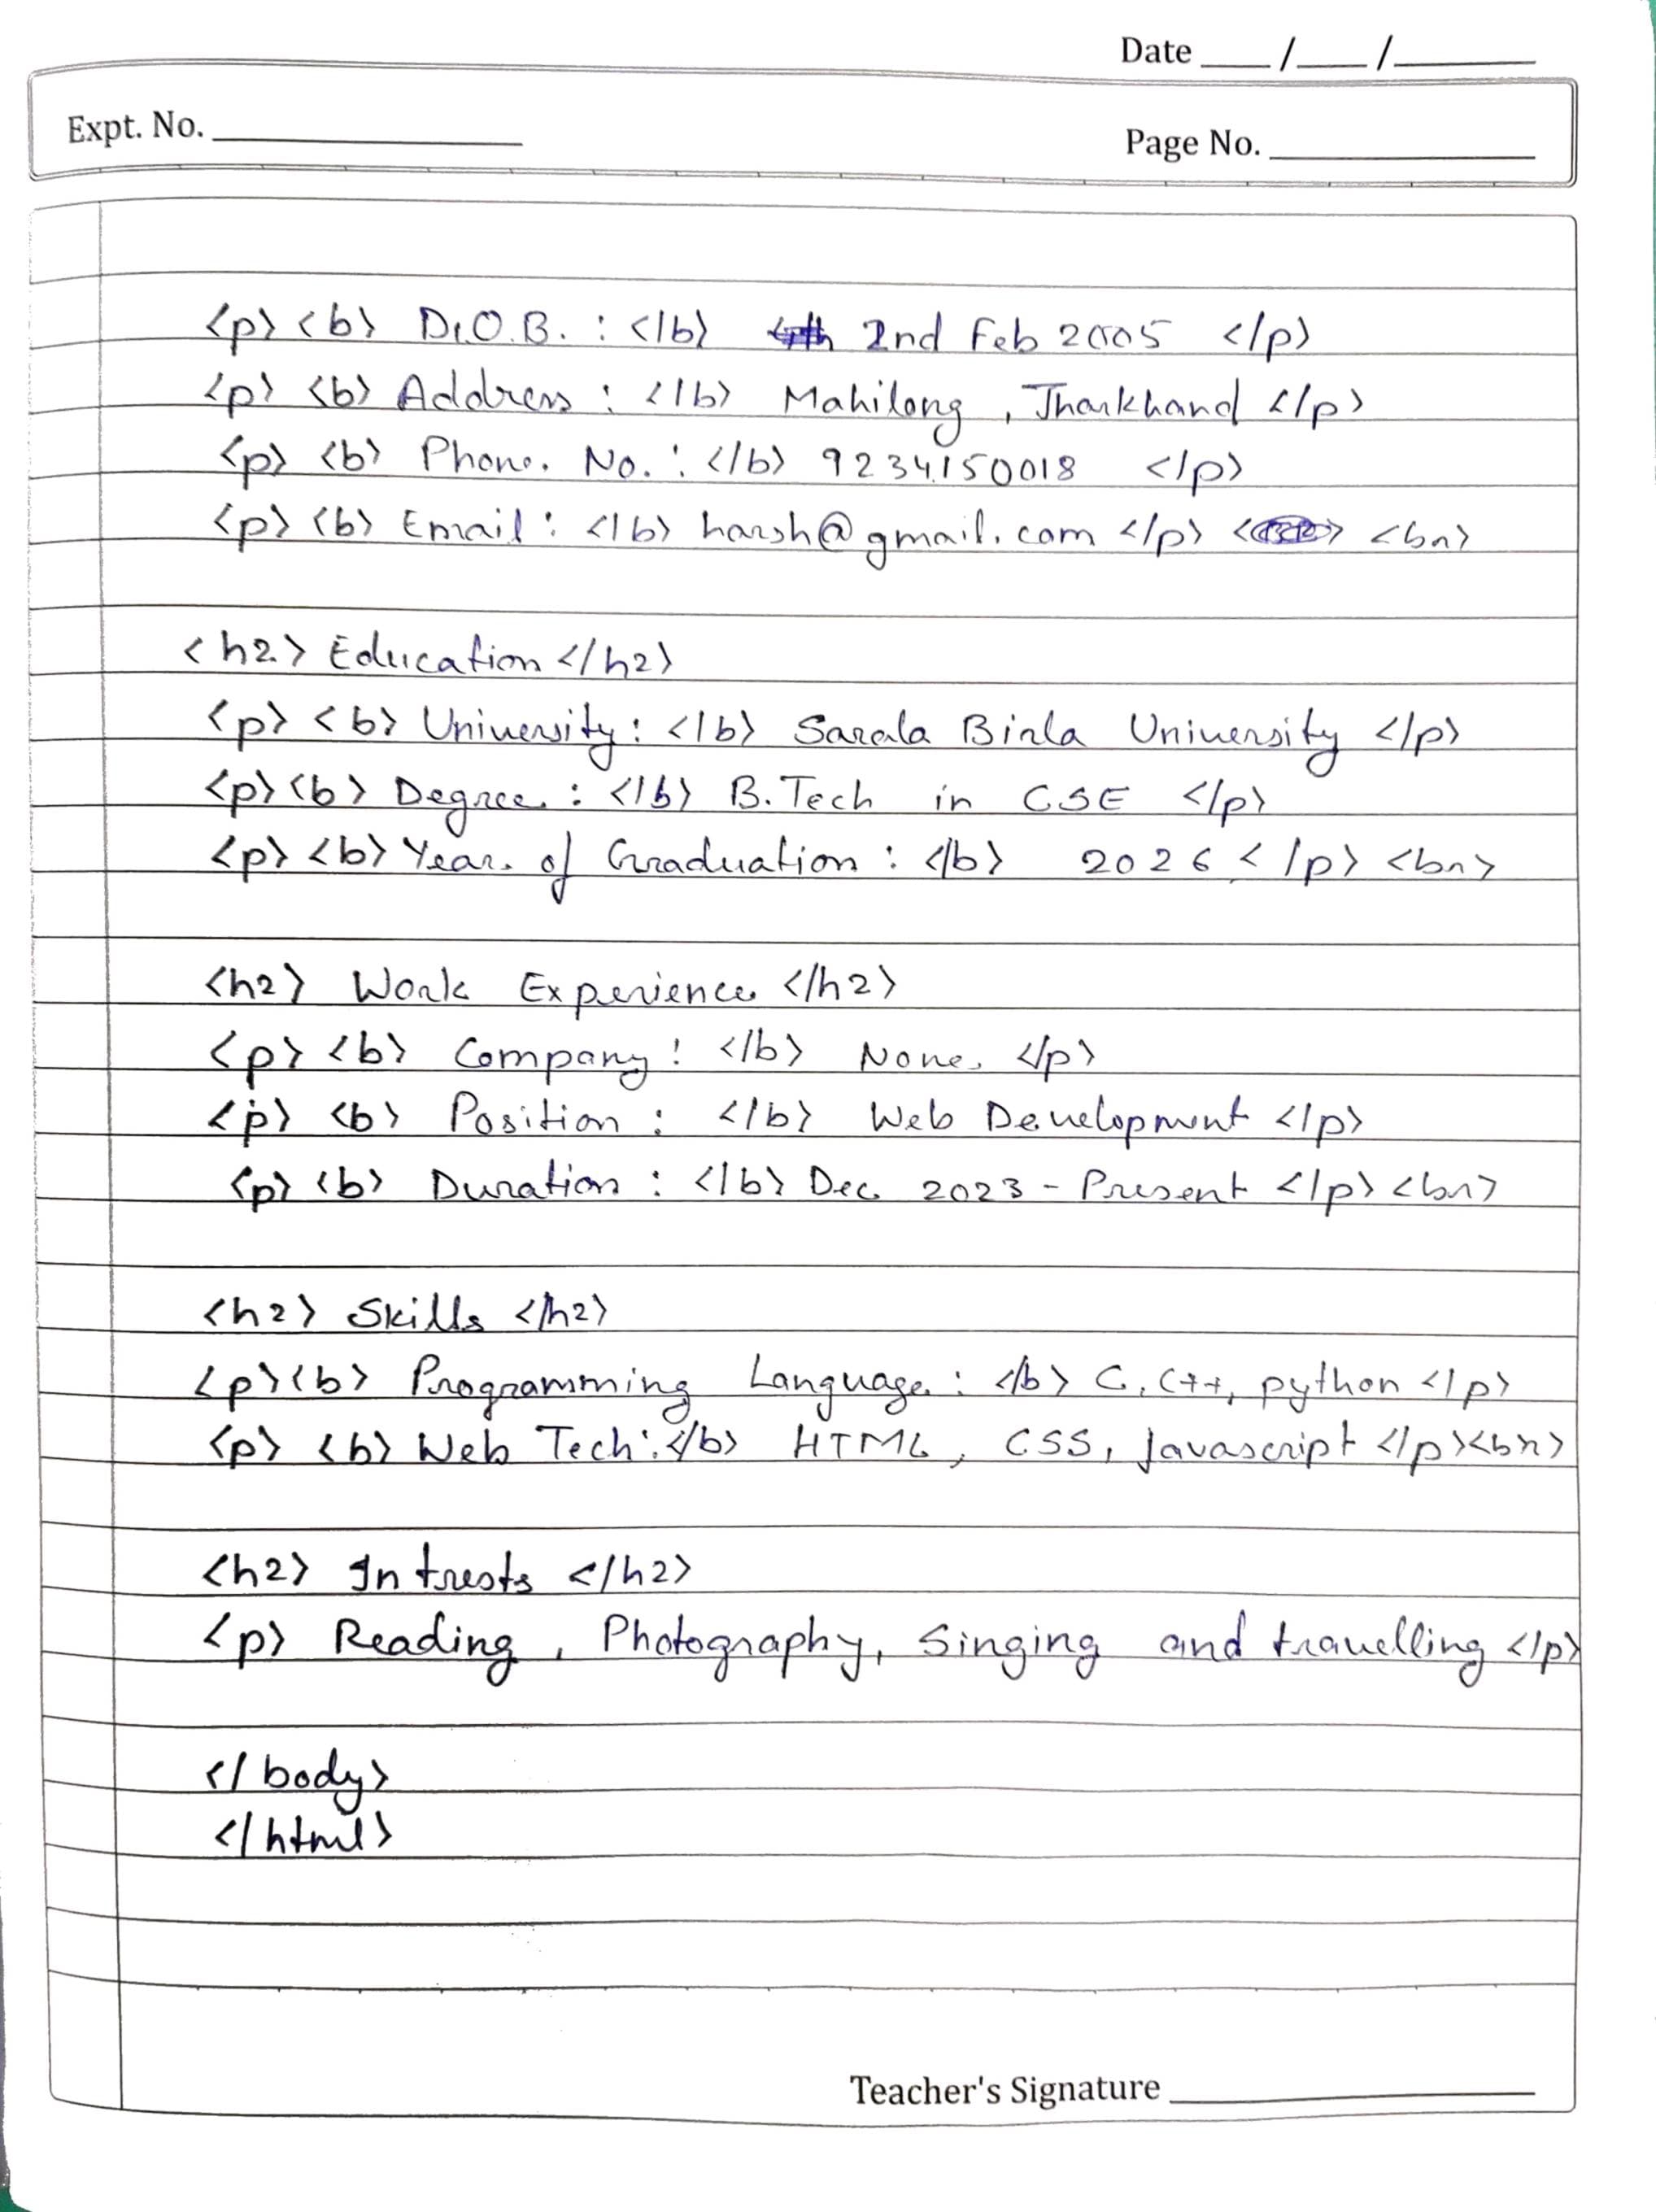 Date ___/___/_____
Expt. No. __________
Page No. __________
<p> <b> D.O.B. : </b> 2nd Feb 2005 </p>
<p> <b> Address : </b> Mahilong , Jharkhand </p>
<p> <b> Phone. No. : </b> 9234150018 </p>
<p> <b> Email : </b> harsh@gmail.com </p> <br>
<h2> Education </h2>
<p> <b> University : </b> Sarala Birla University </p>
<p> <b> Degree : </b> B.Tech in CSE </p>
<p> <b> Year of Graduation : </b> 2026 </p> <br>
<h2> Work Experience </h2>
<p> <b> Company : </b> None </p>
<p> <b> Position : </b> Web Development </p>
<p> <b> Duration : </b> Dec 2023 - Present </p> <br>
<h2> Skills </h2>
<p> <b> Programming Language : </b> C, C++, python </p>
<p> <b> Web Tech : </b> HTML, CSS, Javascript </p> <br>
<h2> Intrests </h2>
<p> Reading , Photography, Singing and travelling </p>
</body>
</html>
Teacher's Signature __________